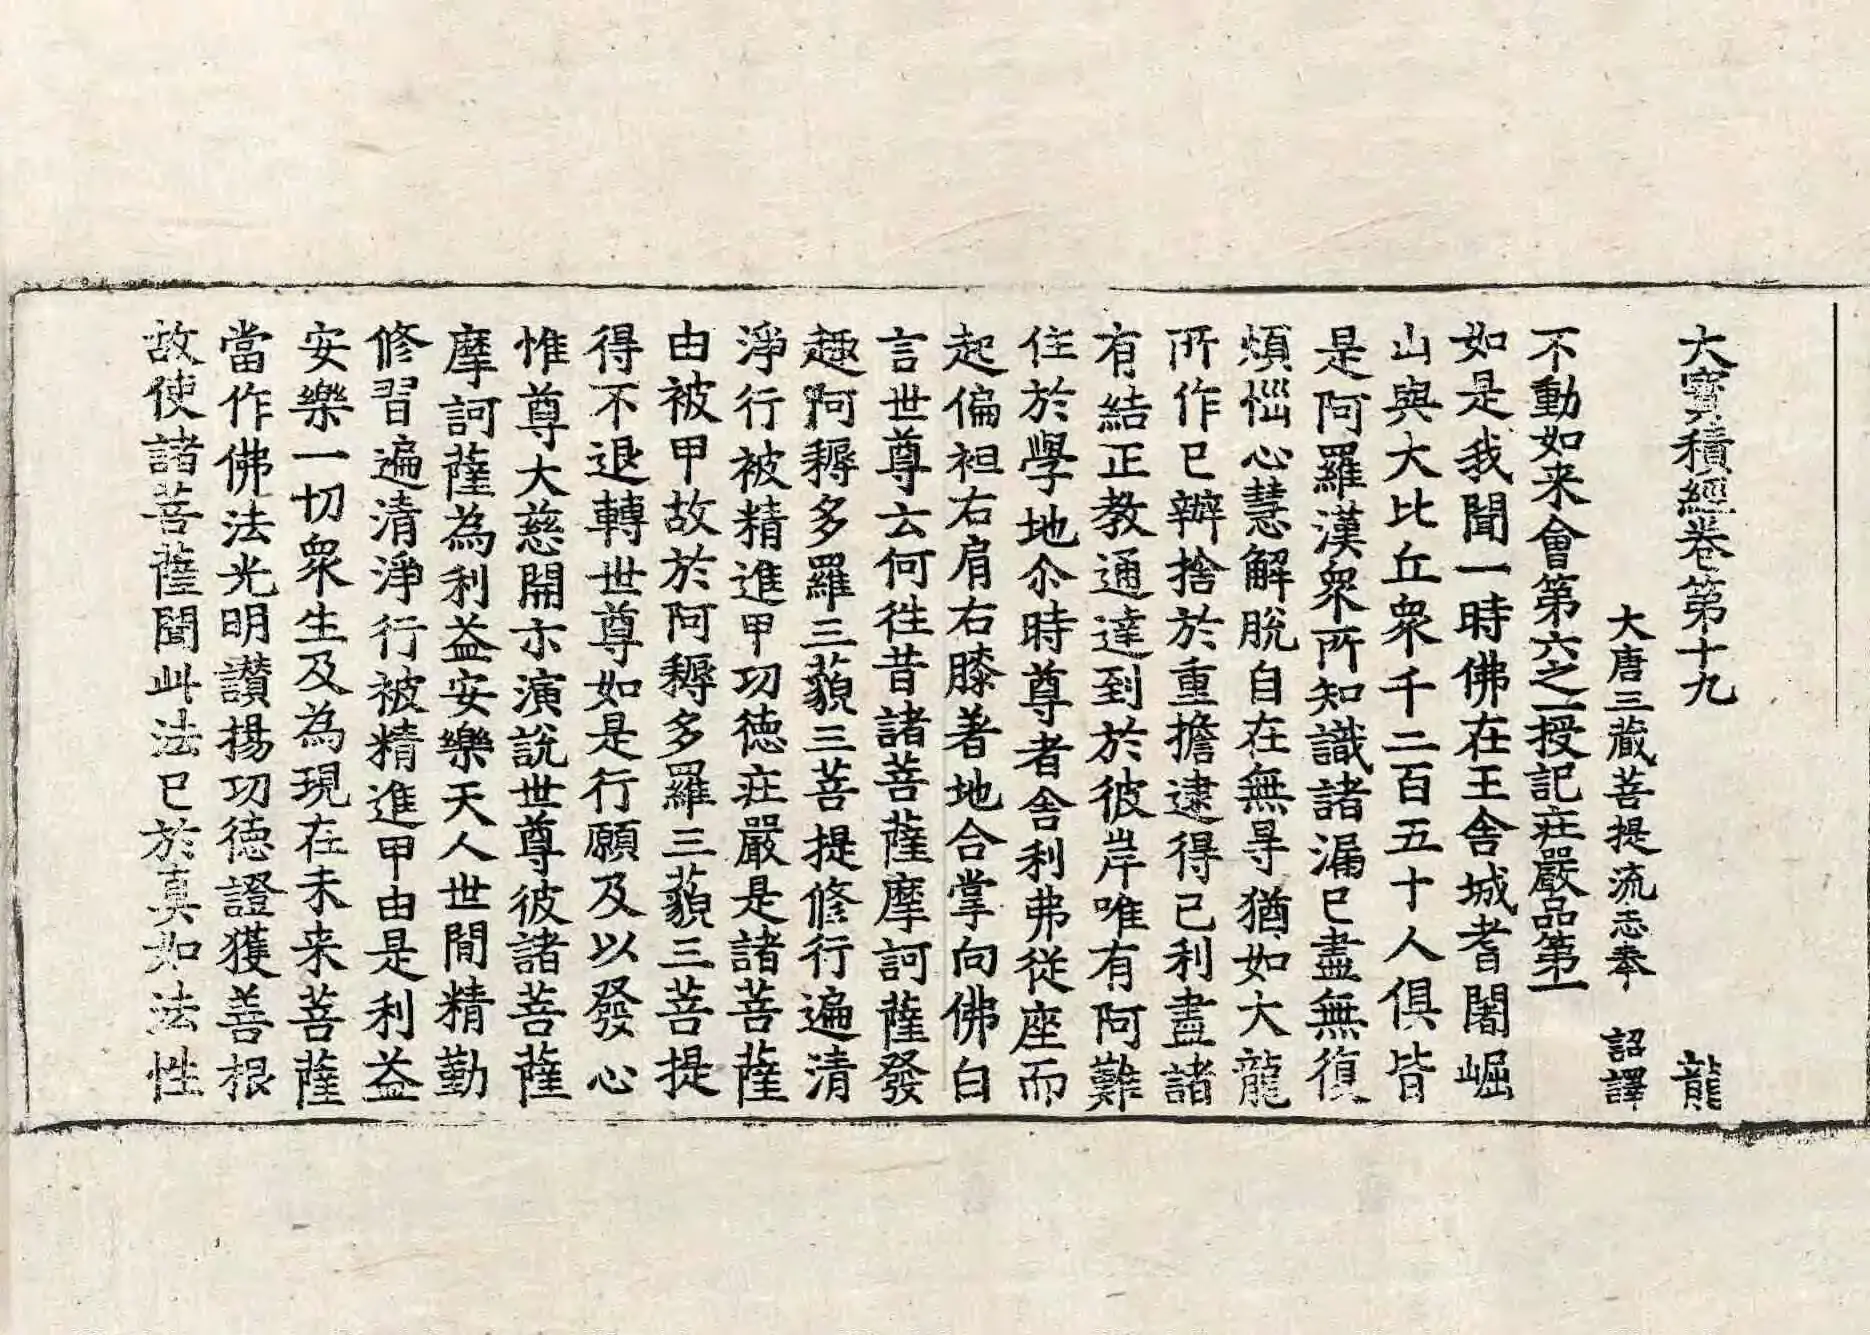 大寶積經卷第十九 龍
大唐三藏菩提流志奉 詔譯
不動如来會第六之一授記莊嚴品第一
如是我聞一時佛在王舍城耆闍崛
山與大比丘眾千二百五十人俱皆
是阿羅漢眾所知識諸漏已盡無復
煩惱心慧解脫自在無㝵猶如大龍
所作已辦捨於重擔逮得己利盡諸
有結正教通達到於彼岸唯有阿難
住於學地尒時尊者舍利弗從座而
起偏袒右肩右膝著地合掌向佛白
言世尊云何往昔諸菩薩摩訶薩發
趣阿耨多羅三藐三菩提修行遍清
淨行被精進甲功德莊嚴是諸菩薩
由被甲故於阿耨多羅三藐三菩提
得不退轉世尊如是行願及以發心
惟尊大慈開示演說世尊彼諸菩薩
摩訶薩為利益安樂天人世間精勤
修習遍清淨行被精進甲由是利益
安樂一切眾生及為現在未来菩薩
當作佛法光明讚揚功德證獲善根
故使諸菩薩聞此法已於真如法性